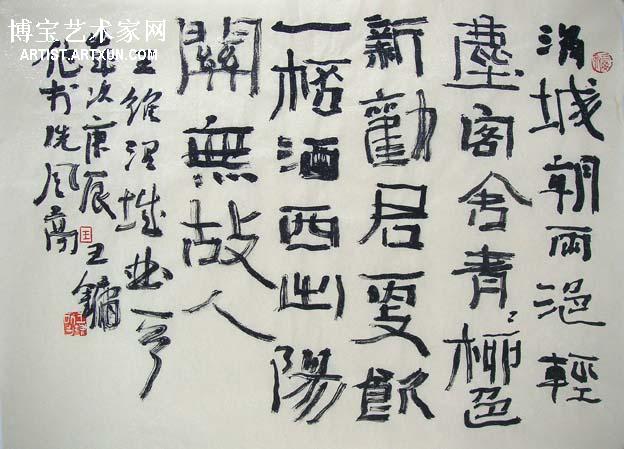 博宝艺术家网
ARTIST.ARTXUN.COM
渭城朝雨浥輕
塵客舍青〻柳色
新勸君更飲
一桮酒西出陽
關無故人
王維渭城曲一首
歲次庚辰
王鏞